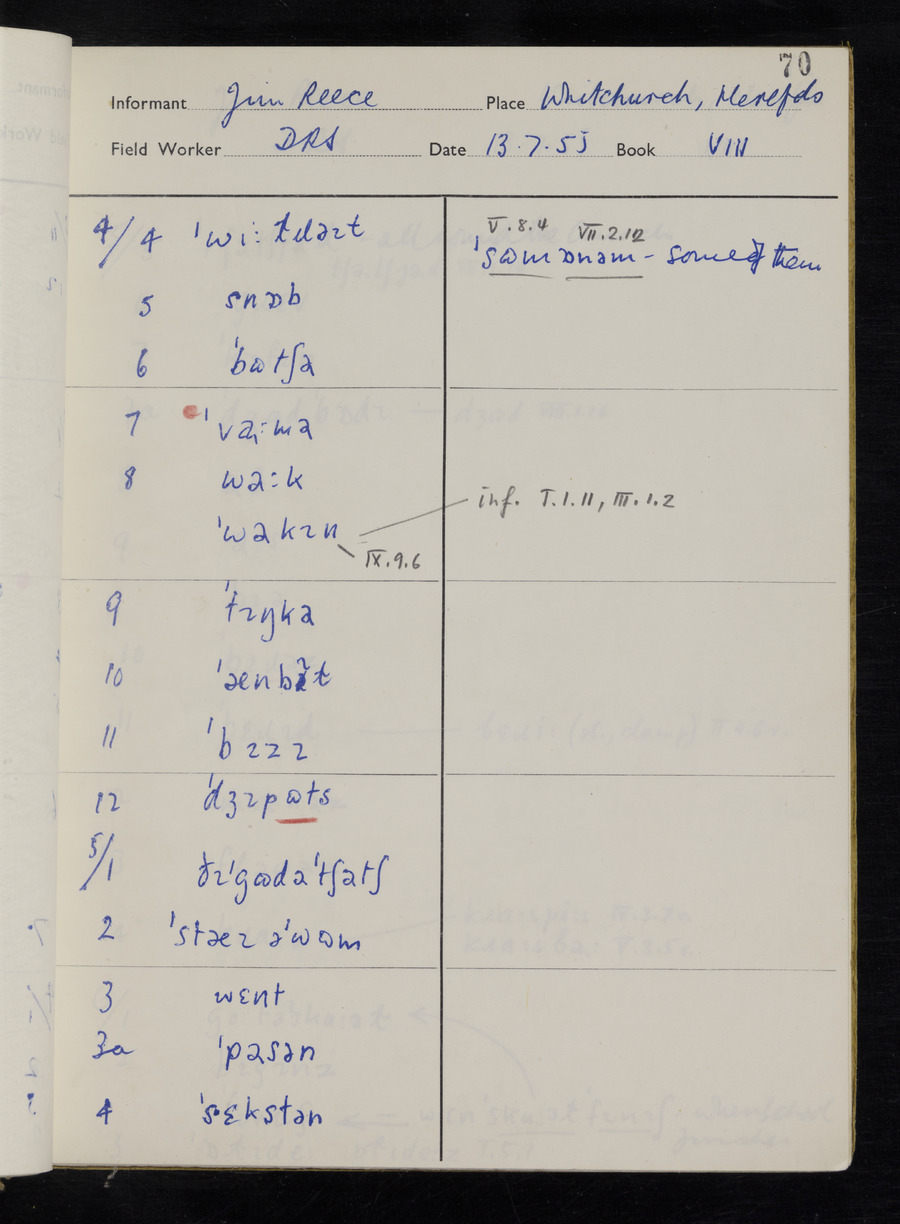 70
Informant Jim Reece Place Whitchurch, Herefds
Field Worker DRS Date 13.7.55 Book VIII
4/4 ˈwiːtɫəɪt
V.8.4 VII.2.12
ˈsɷm ɒnəm - some of them
5 snɒb
6 ˈbɷtʃə
7
8 wəːk
ˈwəkɪn
inf. I.1.11, III.1.2
IX.9.6
9 ˈtɪŋkə
10
11 ˈbɪzɪ
12 ˈdʒɪpɷts
5/1 ðɪˈgɷdəˈtʃətʃ
2 ˈstæɪ əˈwɷm
3 wɛnt
3a ˈpasən
4 ˈsɛkstən